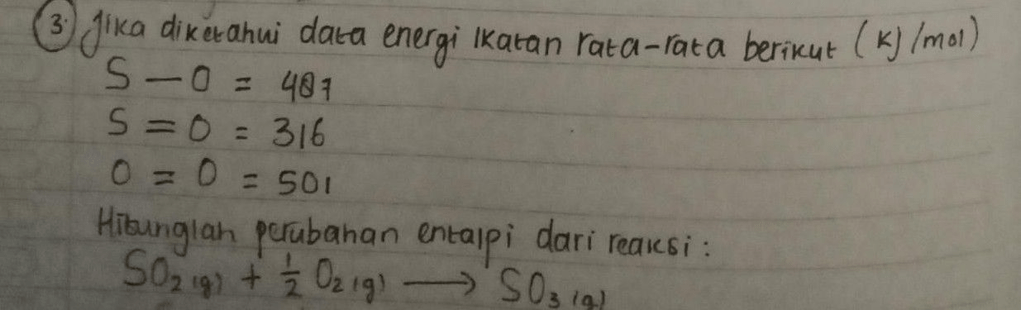 3. Jika diketahui data energi ikatan rata-rata berikut (kJ/mol)
S — O = 487
S = O = 316
O = O = 501
Hitunglah perubahan entalpi dari reaksi :
SO₂ (g) + ½ O₂ (g) ⟶ SO₃ (g)